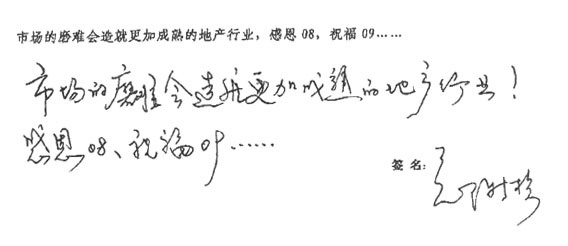 市场的磨难会造就更加成熟的地产行业，感恩 08，祝福 09……
市场的磨难会造就更加成熟的地产行业！
感恩 08、祝福 09……
签名：